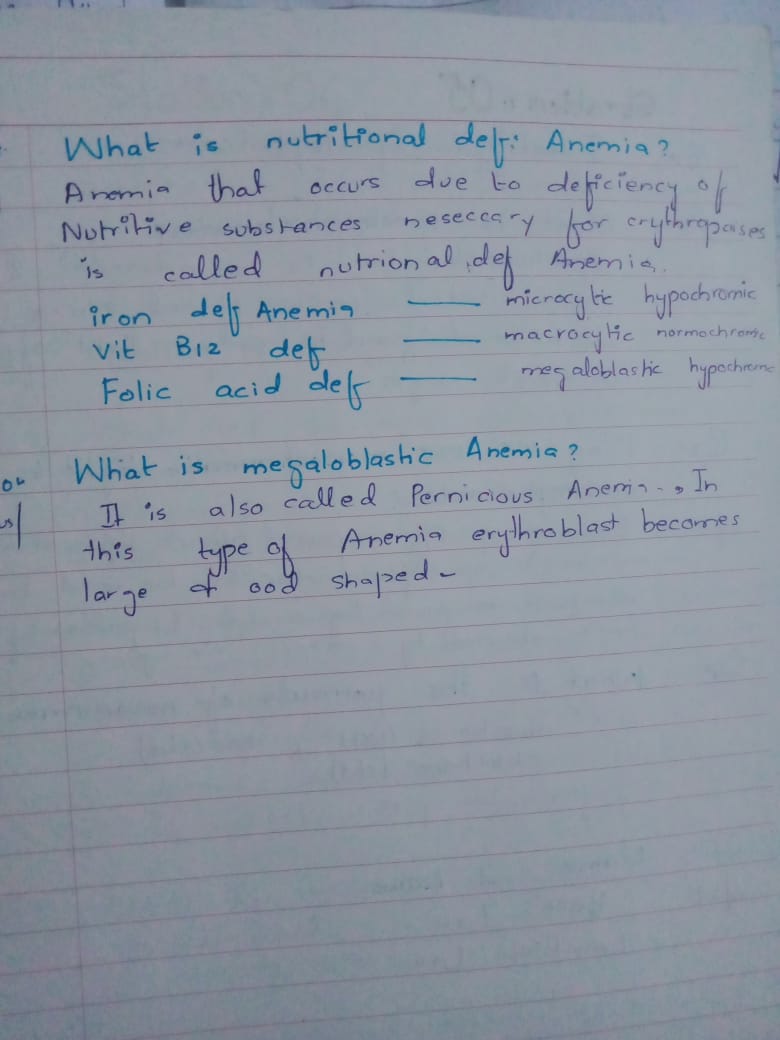 What is nutritional def: Anemia?
Anemia that occurs due to deficiency of
Nutritive substances neseccary for erythropoises
is called nutrional def Anemia.
iron def Anemia — microcytic hypochromic
Vit B12 def — macrocytic normochromic
Folic acid def — megaloblastic hypochromc
What is megaloblastic Anemia?
It is also called Pernicious Anemia., In
this type of Anemia erythroblast becomes
large & ood shaped-